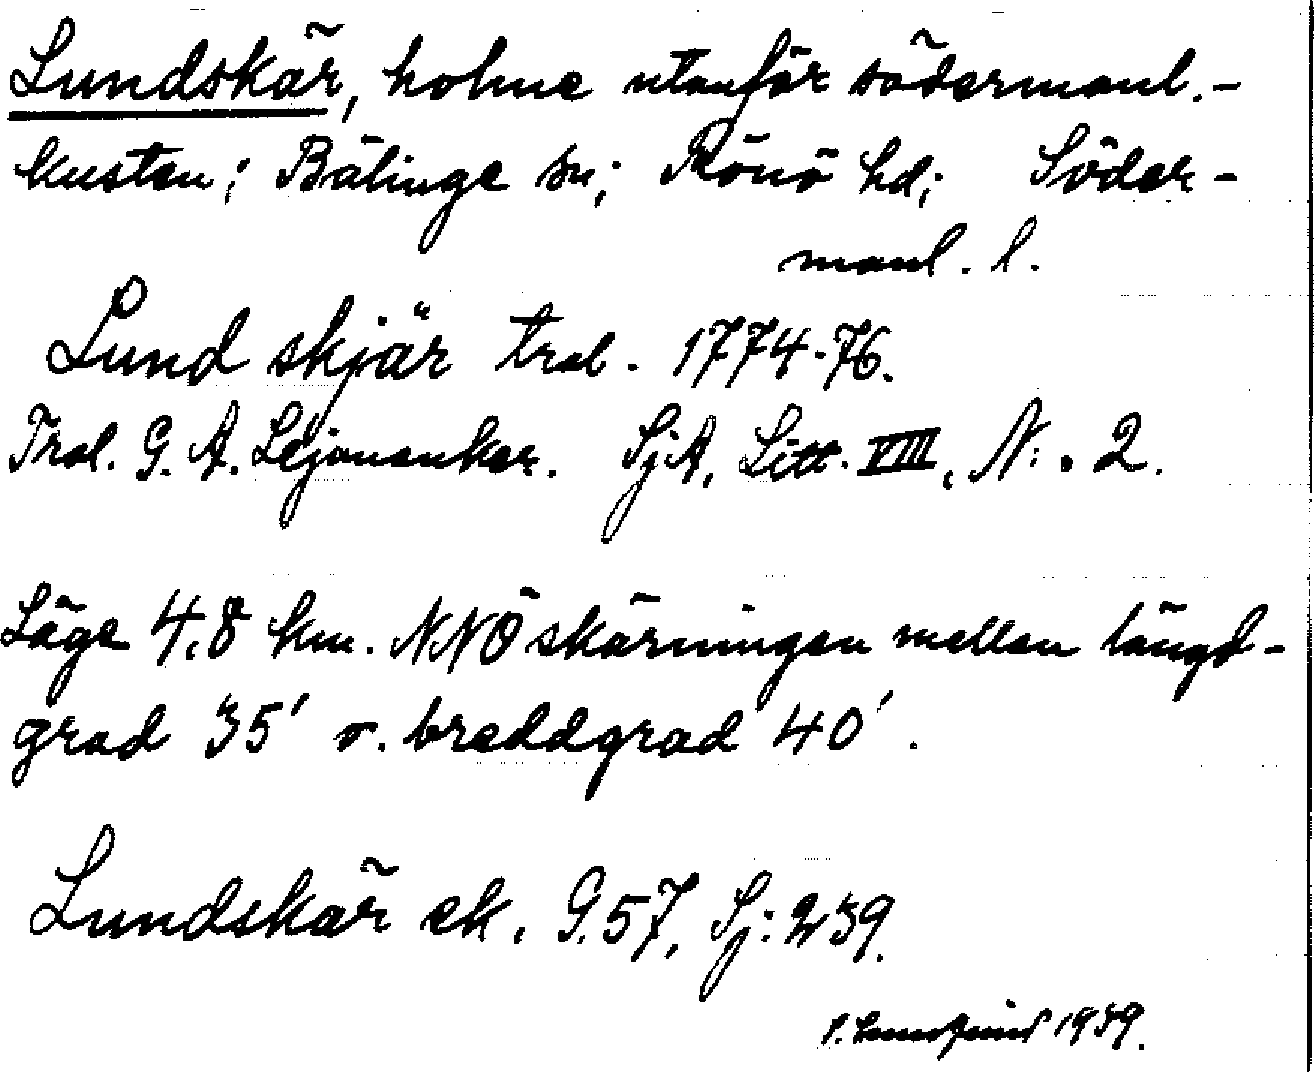 Lundskär, holme utanför södermanl.-
kusten; Bälinge sn; Rönö hd; Söder-
manl. l.
Lund skjär trol. 1774-76.
Trol. G. A. Lejonanker. SjA, Litt. VIII, N: 2.
Läge 4,8 km. NNÖ skärningen mellan längd-
grad 35' o. breddgrad 40'.
Lundskär ek. G. 57, Sj: 239.
1939.